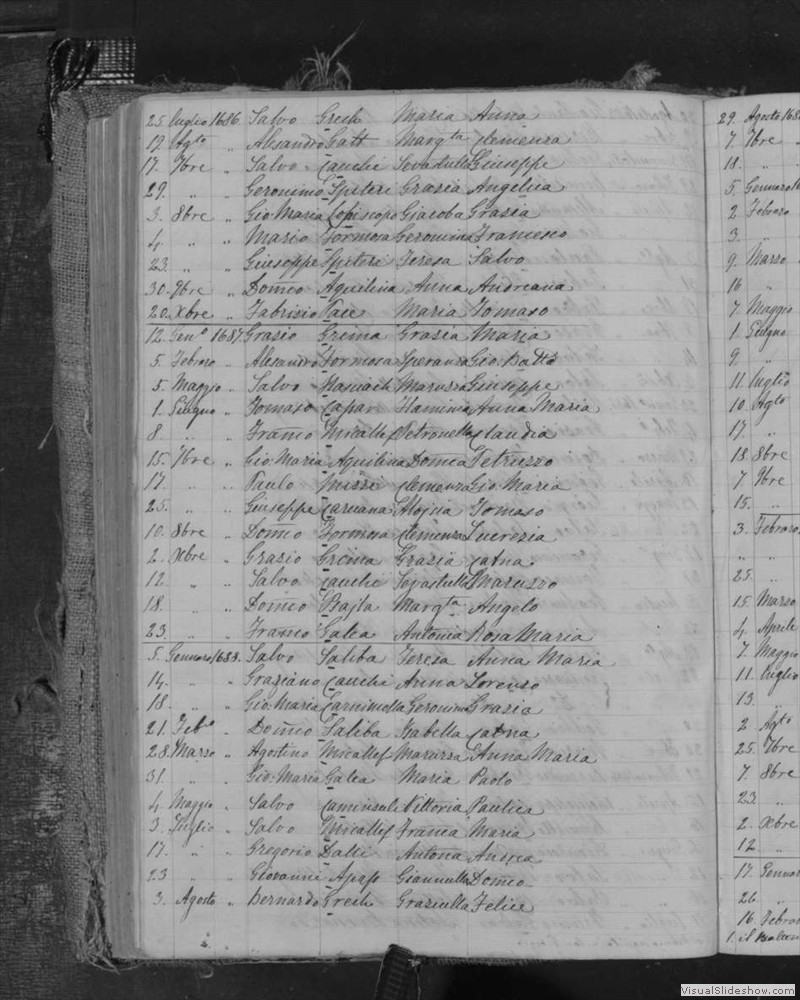 25. Luglio 1686. Salvo Grech Maria Anna
12. Agto „ Alesandro Gatt Margta Clemenza
17. 7bre „ Salvo Cauchi Sevastella Giuseppe
29. „ „ Geronimo Spiteri Grazia Angelica
3. 8bre „ Gio Maria Giacoba Grazia
4. „ „ Mario Formosa Geronima Francesco
23. „ „ Giuseppe Spiteri Teresa Salvo
30. 9bre „ Domco Aquilina Anna Andreana
20. Xbre „ Fabrizio Pace Maria Tomaso
12. Geno 1687. Grazio Grima Grazia Maria
5. Febraro „ Alesandro Formosa Speranza Gio Batta
5. Maggio „ Salvo Maruzza Giuseppe
1. Giugno „ Tomaso Capar Flaminia Anna Maria
8. „ „ Franco Micallef Petronella Claudia
15. 7bre „ Gio Maria Aquilina Domca Petruzzo
17. „ „ Paulo Clemenza Gio Maria
25. „ „ Giuseppe Caruana Tomaso
10. 8bre „ Domco Formosa Clemenza Lucrezia
2. Xbre „ Grazio Grima Grazia Catna
12. „ „ Salvo Cauchi Sevastella Maruzzo
18. „ „ Domco Margta Angelo
23. „ „ Franco Galea Antonia Rosa Maria
5. Gennaro 1688. Salvo Saliba Teresa Anna Maria
14. „ „ Graziano Cauchi Anna Lorenzo
18. „ „ Gio Maria Geronima Grazia
21. Febo „ Domco Saliba Isabella Catna
28. Marzo „ Agostino Micallef Maruzza Anna Maria
31. „ „ Gio Maria Galea Maria Paolo
4. Maggio „ Salvo Vittoria Paulica
3. Luglio „ Salvo Micallef Franca Maria
17. „ „ Gregorio Dalli Antona Andrea
23 „ „ Giovanni Giannella Domco
3. Agosto „ Bernardo Grech Graziulla Felice
29. Agosto 168
7. 7bre
18. „
5. Gennaro
2. Febraro
3. „
9. Marzo
16 „
7. Maggio
1. Giugno
9. „
11. Luglio
10. Agto
17. „
18. 8bre
7. 9bre
15. „
3. Febraro
„ „
25. „
15. Marzo
4. Aprile
7. Maggio
11. Luglio
13. „
2. Agto
25. 7bre
7. 8bre
23. „
2. Xbre
12. „
17. Gennar
26. „
16. Febrar
1. il
VisualSlideshow.com